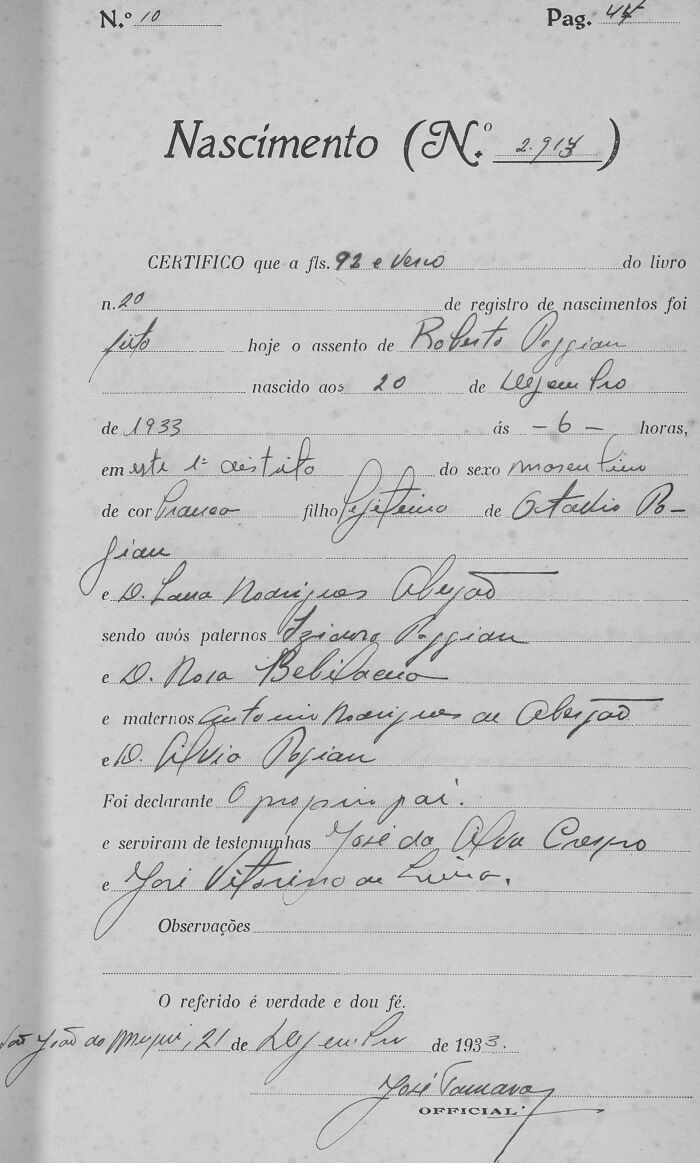 N.º 10 Pag. 44
Nascimento (N.º 2.913)
CERTIFICO que a fls. 92 e verso do livro
n. 20 de registro de nascimentos foi
feito hoje o assento de Roberto Poggian
nascido aos 20 de Dezembro
de 1933 ás - 6 - horas,
em este 1º distrito do sexo masculino
de cor branca filho legitimo de Octavio Po-
gian
e D. Laua Rodrigues Abejão
sendo avós paternos Izidoro Poggian
e D. Rosa Bebilacua
e maternos Antonio Rodrigues de Abejão
e D. Pogian
Foi declarante O proprio pai.
e serviram de testemunhas José da Alva Crespo
e José Vitorino de
Observações
O referido é verdade e dou fé.
São João do Muqui, 21 de Dezembro de 1933.
José
OFFICIAL